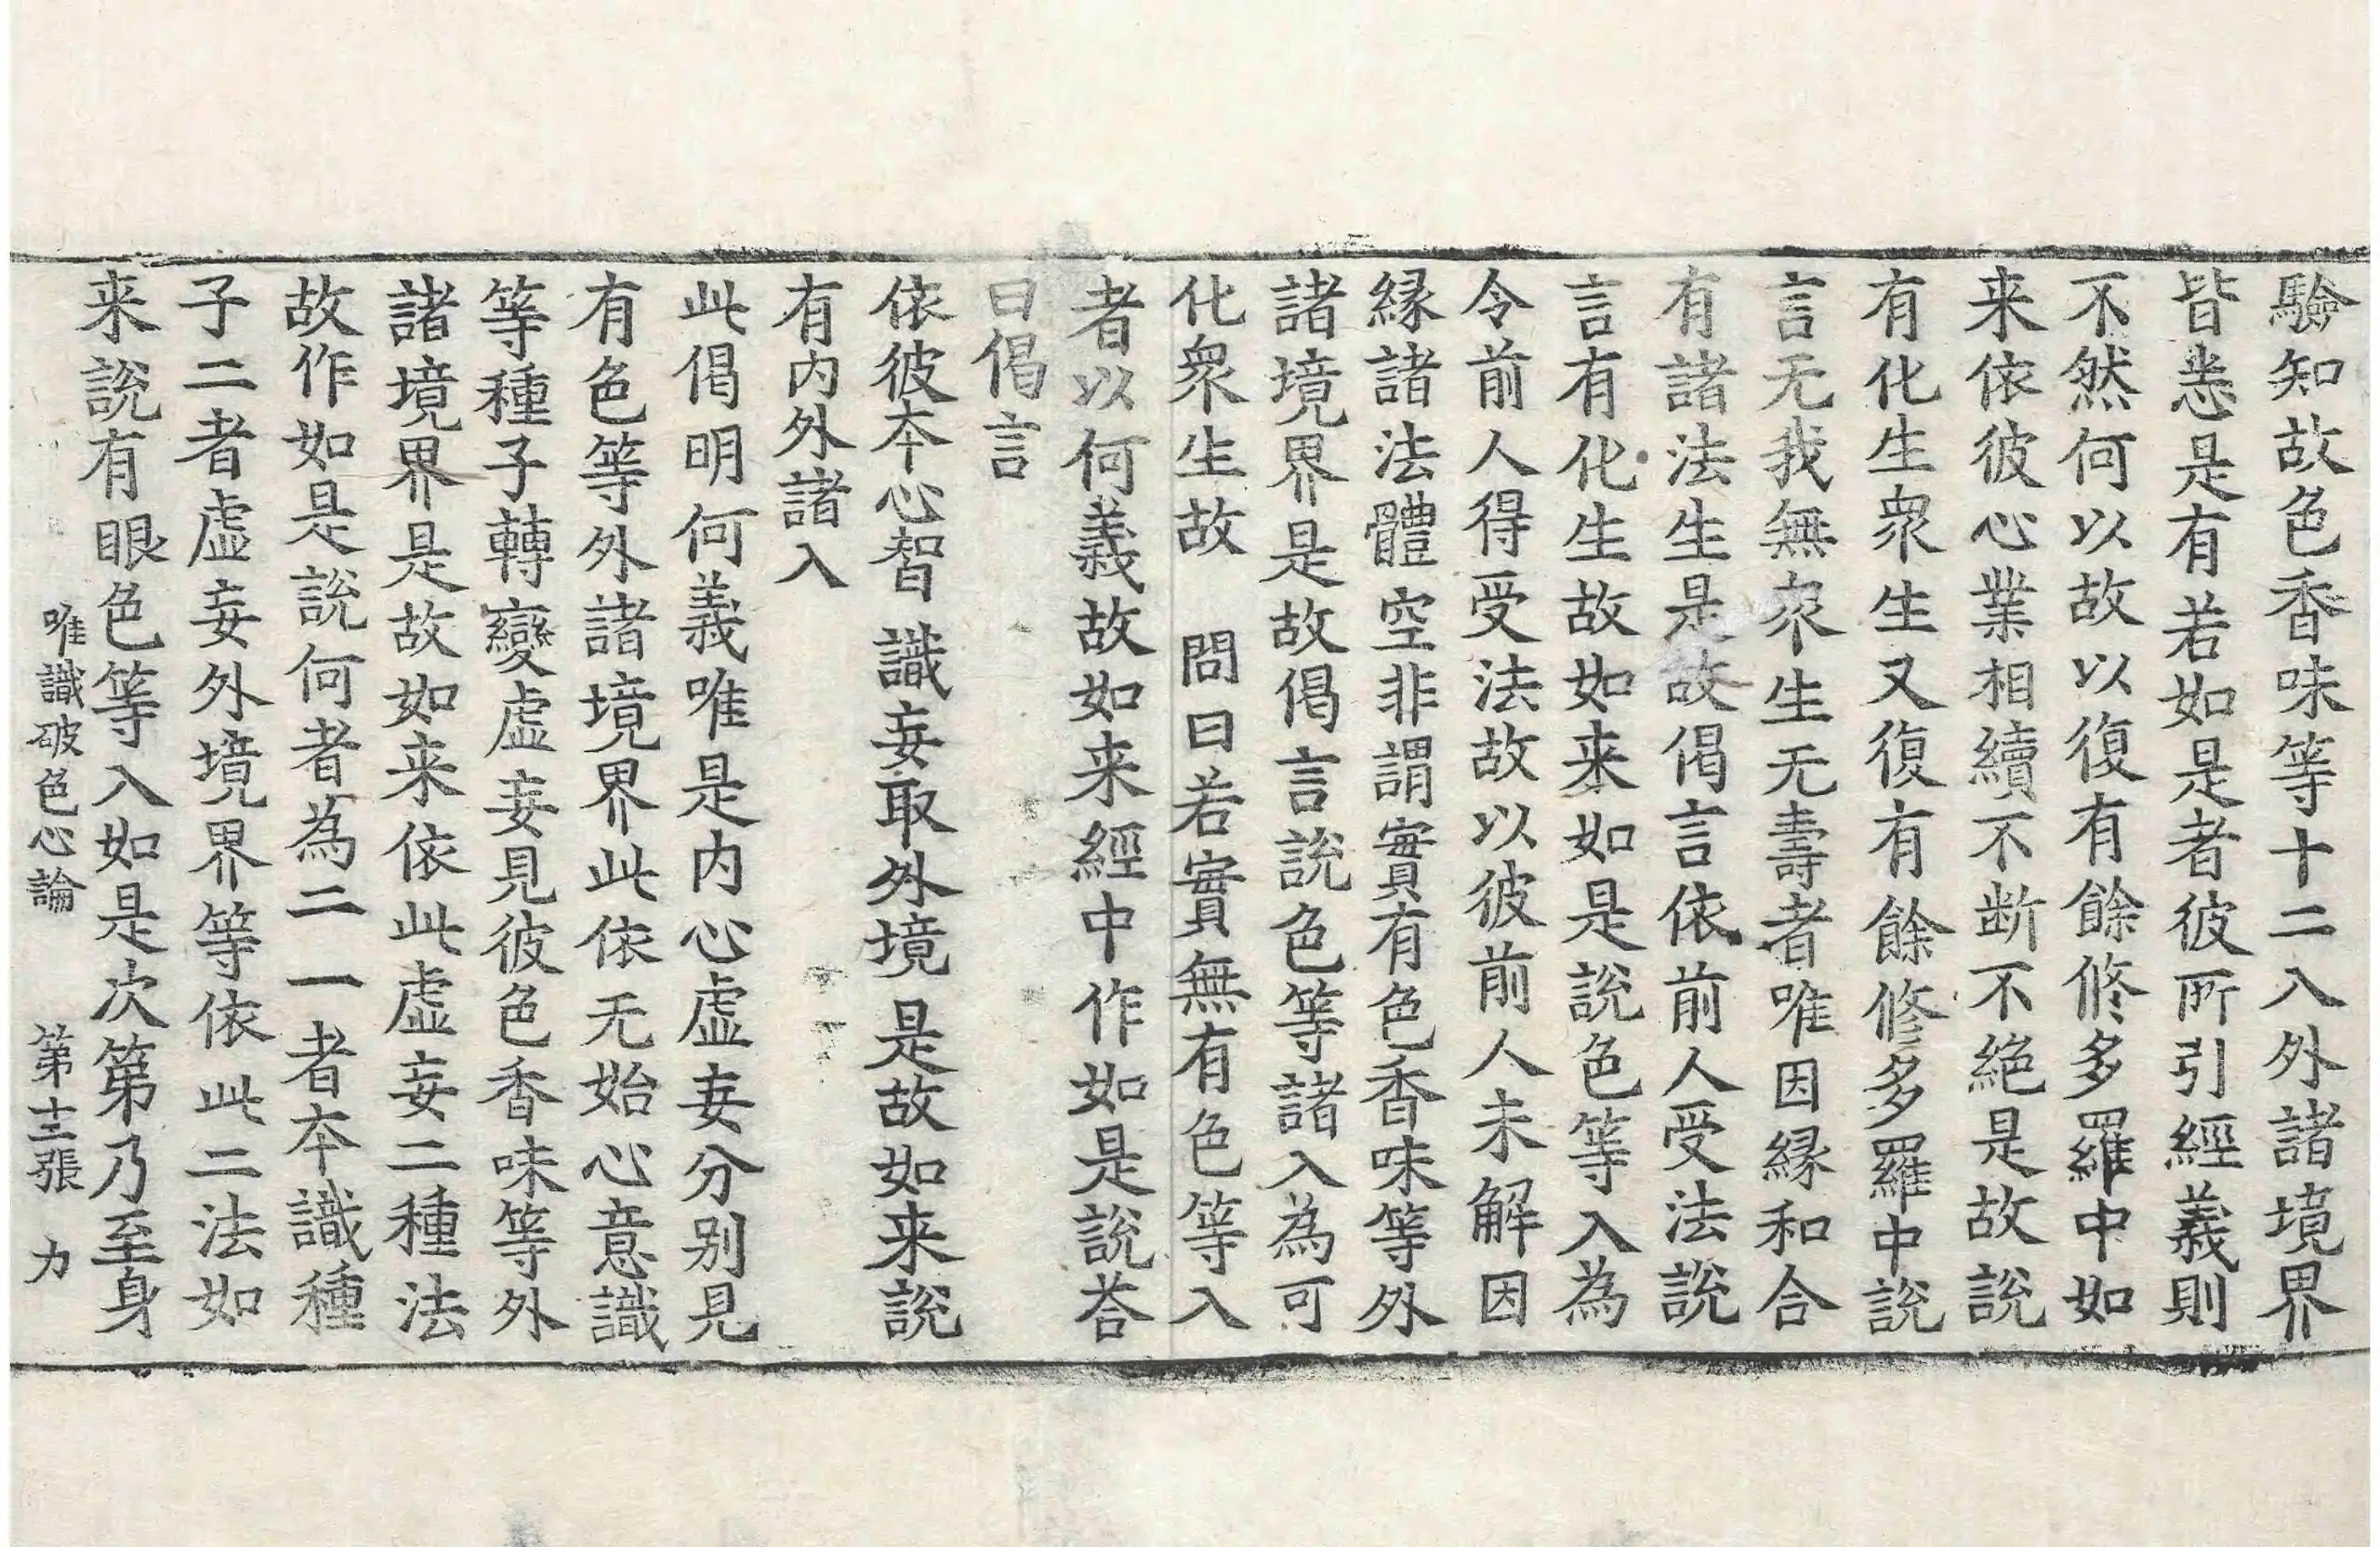 驗知故色香味等十二入外諸境界
皆悉是有若如是者彼所引經義則
不然何以故以復有餘修多羅中如
来依彼心業相續不断不絕是故說
有化生衆生又復有餘修多羅中說
言无我無衆生无壽者唯因緣和合
有諸法生是故偈言依前人受法說
言有化生故如来如是說色等入為
令前人得受法故以彼前人未解因
緣諸法體空非謂實有色香味等外
諸境界是故偈言說色等諸入為可
化衆生故　問曰若實無有色等入
者以何義故如来經中作如是說荅
曰偈言
依彼夲心智　識妄取外境　是故如来說
有内外諸入
此偈明何義唯是内心虛妄分别見
有色等外諸境界此依无始心意識
等種子轉變虛妄見彼色香味等外
諸境界是故如来依此虛妄二種法
故作如是說何者為二一者夲識種
子二者虛妄外境界等依此二法如
来說有眼色等入如是次第乃至身
唯識破色心論　第十二張　力